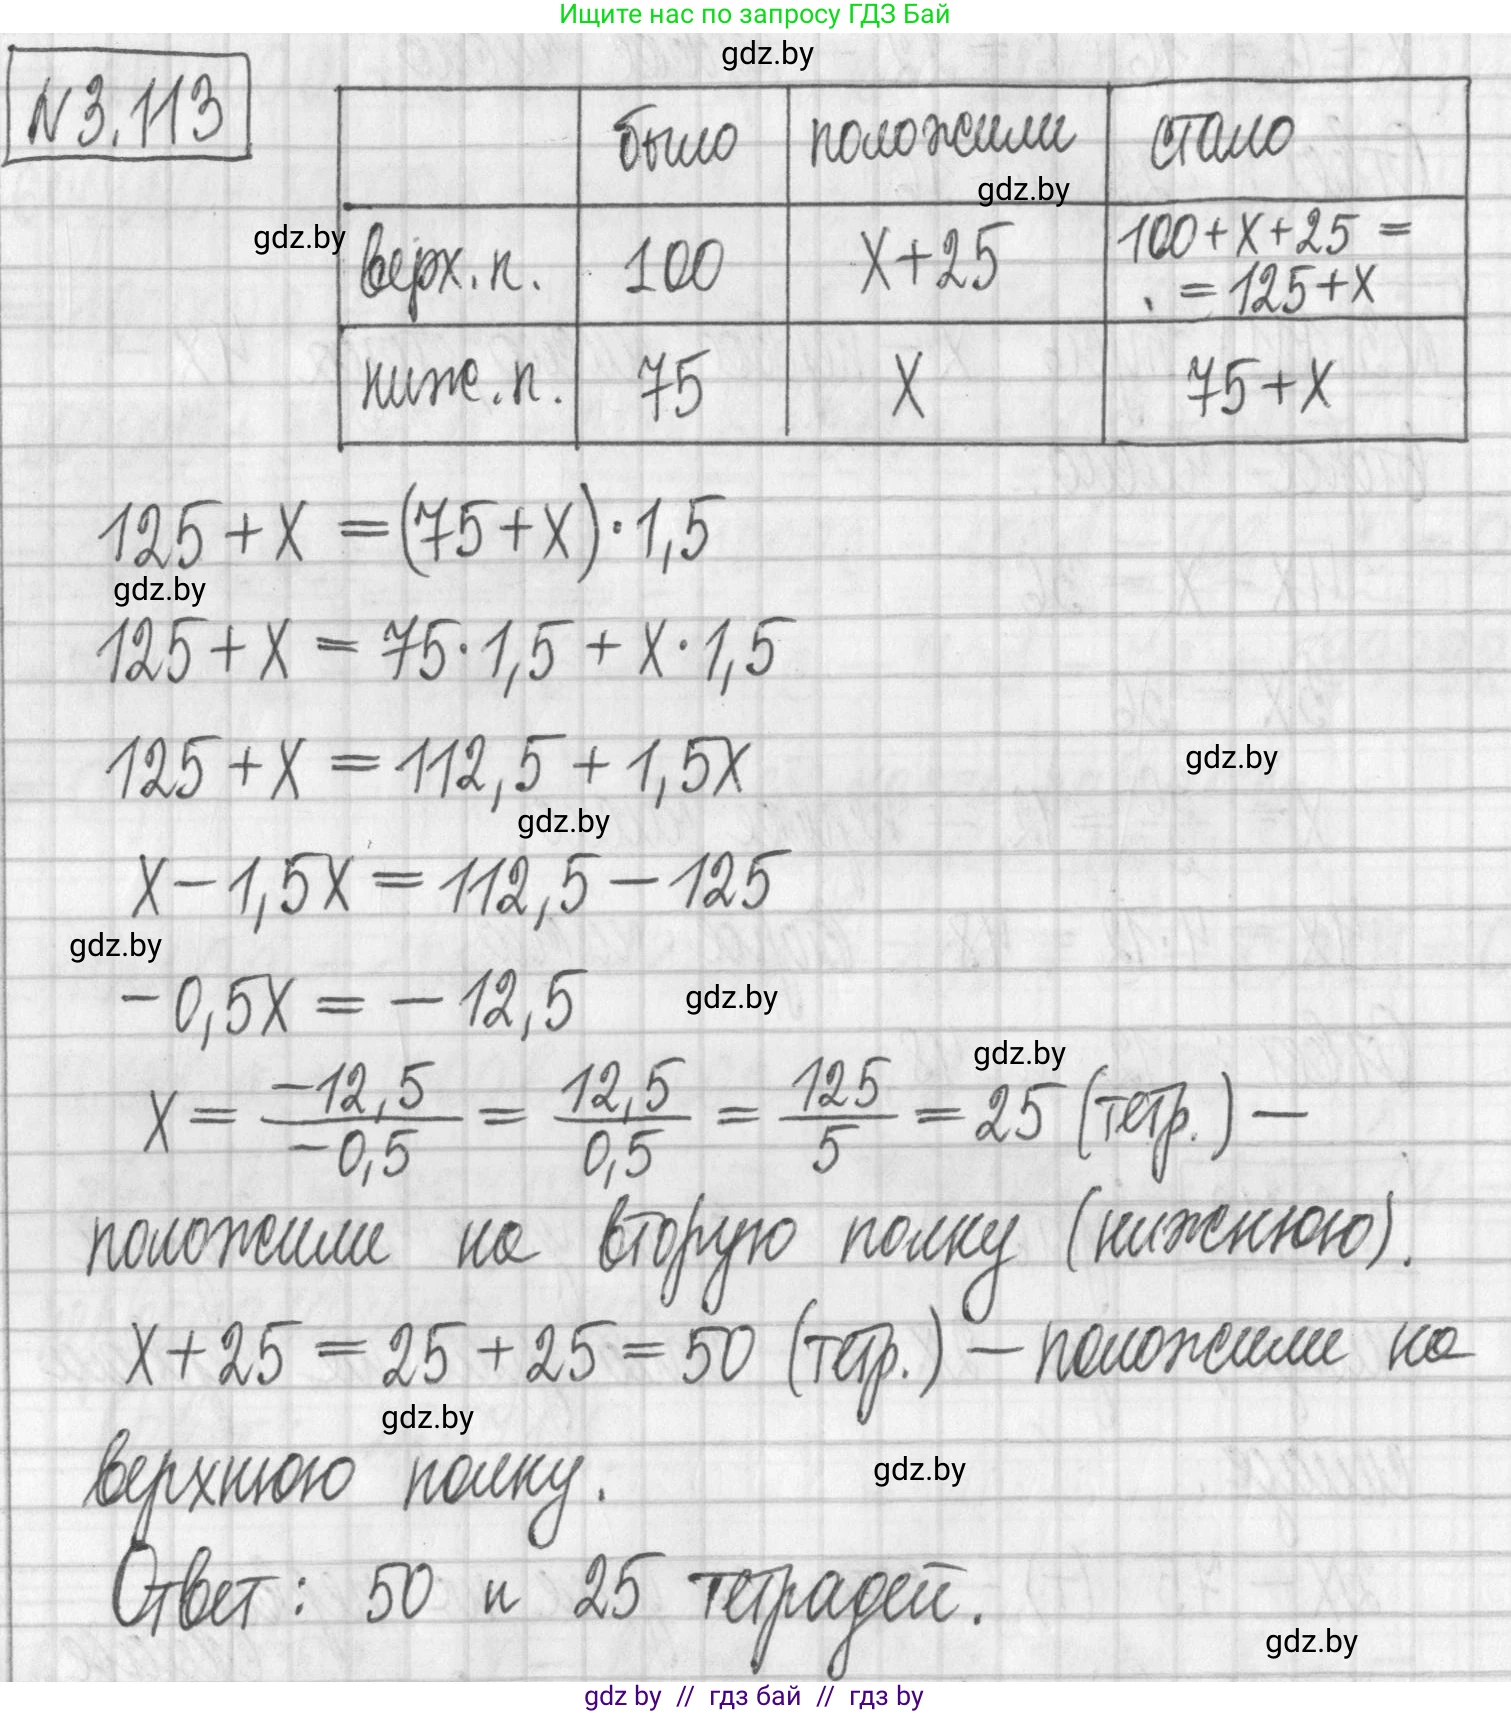 Ищите нас по запросу ГДЗ Бай
gdz.by
N 3.113
было положили стало
gdz.by
gdz.by
верх. п. 100 x+25 100+x+25 =
= 125+x
ниж. п. 75 x 75+x
125 + x = (75 + x) · 1,5
gdz.by
125 + x = 75 · 1,5 + x · 1,5
125 + x = 112,5 + 1,5x
gdz.by
gdz.by
x - 1,5x = 112,5 - 125
gdz.by
-0,5x = -12,5
gdz.by
gdz.by
x = -12,5/-0,5 = 12,5/0,5 = 125/5 = 25 (тетр.) —
положили на вторую полку (нижнюю).
x + 25 = 25 + 25 = 50 (тетр.) — положили на
gdz.by
верхнюю полку.
gdz.by
Ответ: 50 и 25 тетрадей.
gdz.by
gdz by // гдз бай // гдз by